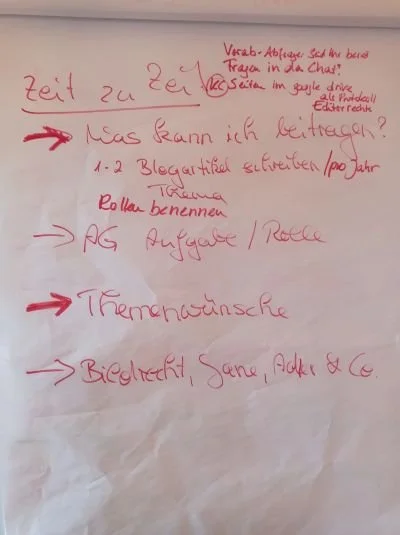 Vorab-Abfrage: Seid Ihr bereit
Fragen in den Chat?
Seiten im google drive
als Protokoll
Editierrechte
Zeit zu Zeit
→ Was kann ich beitragen?
1-2 Blogartikel schreiben / pro Jahr
Thema
Rollen benennen
→ AG Aufgabe / Rolle
→ Themenwünsche
→ Bildrecht, & Co.